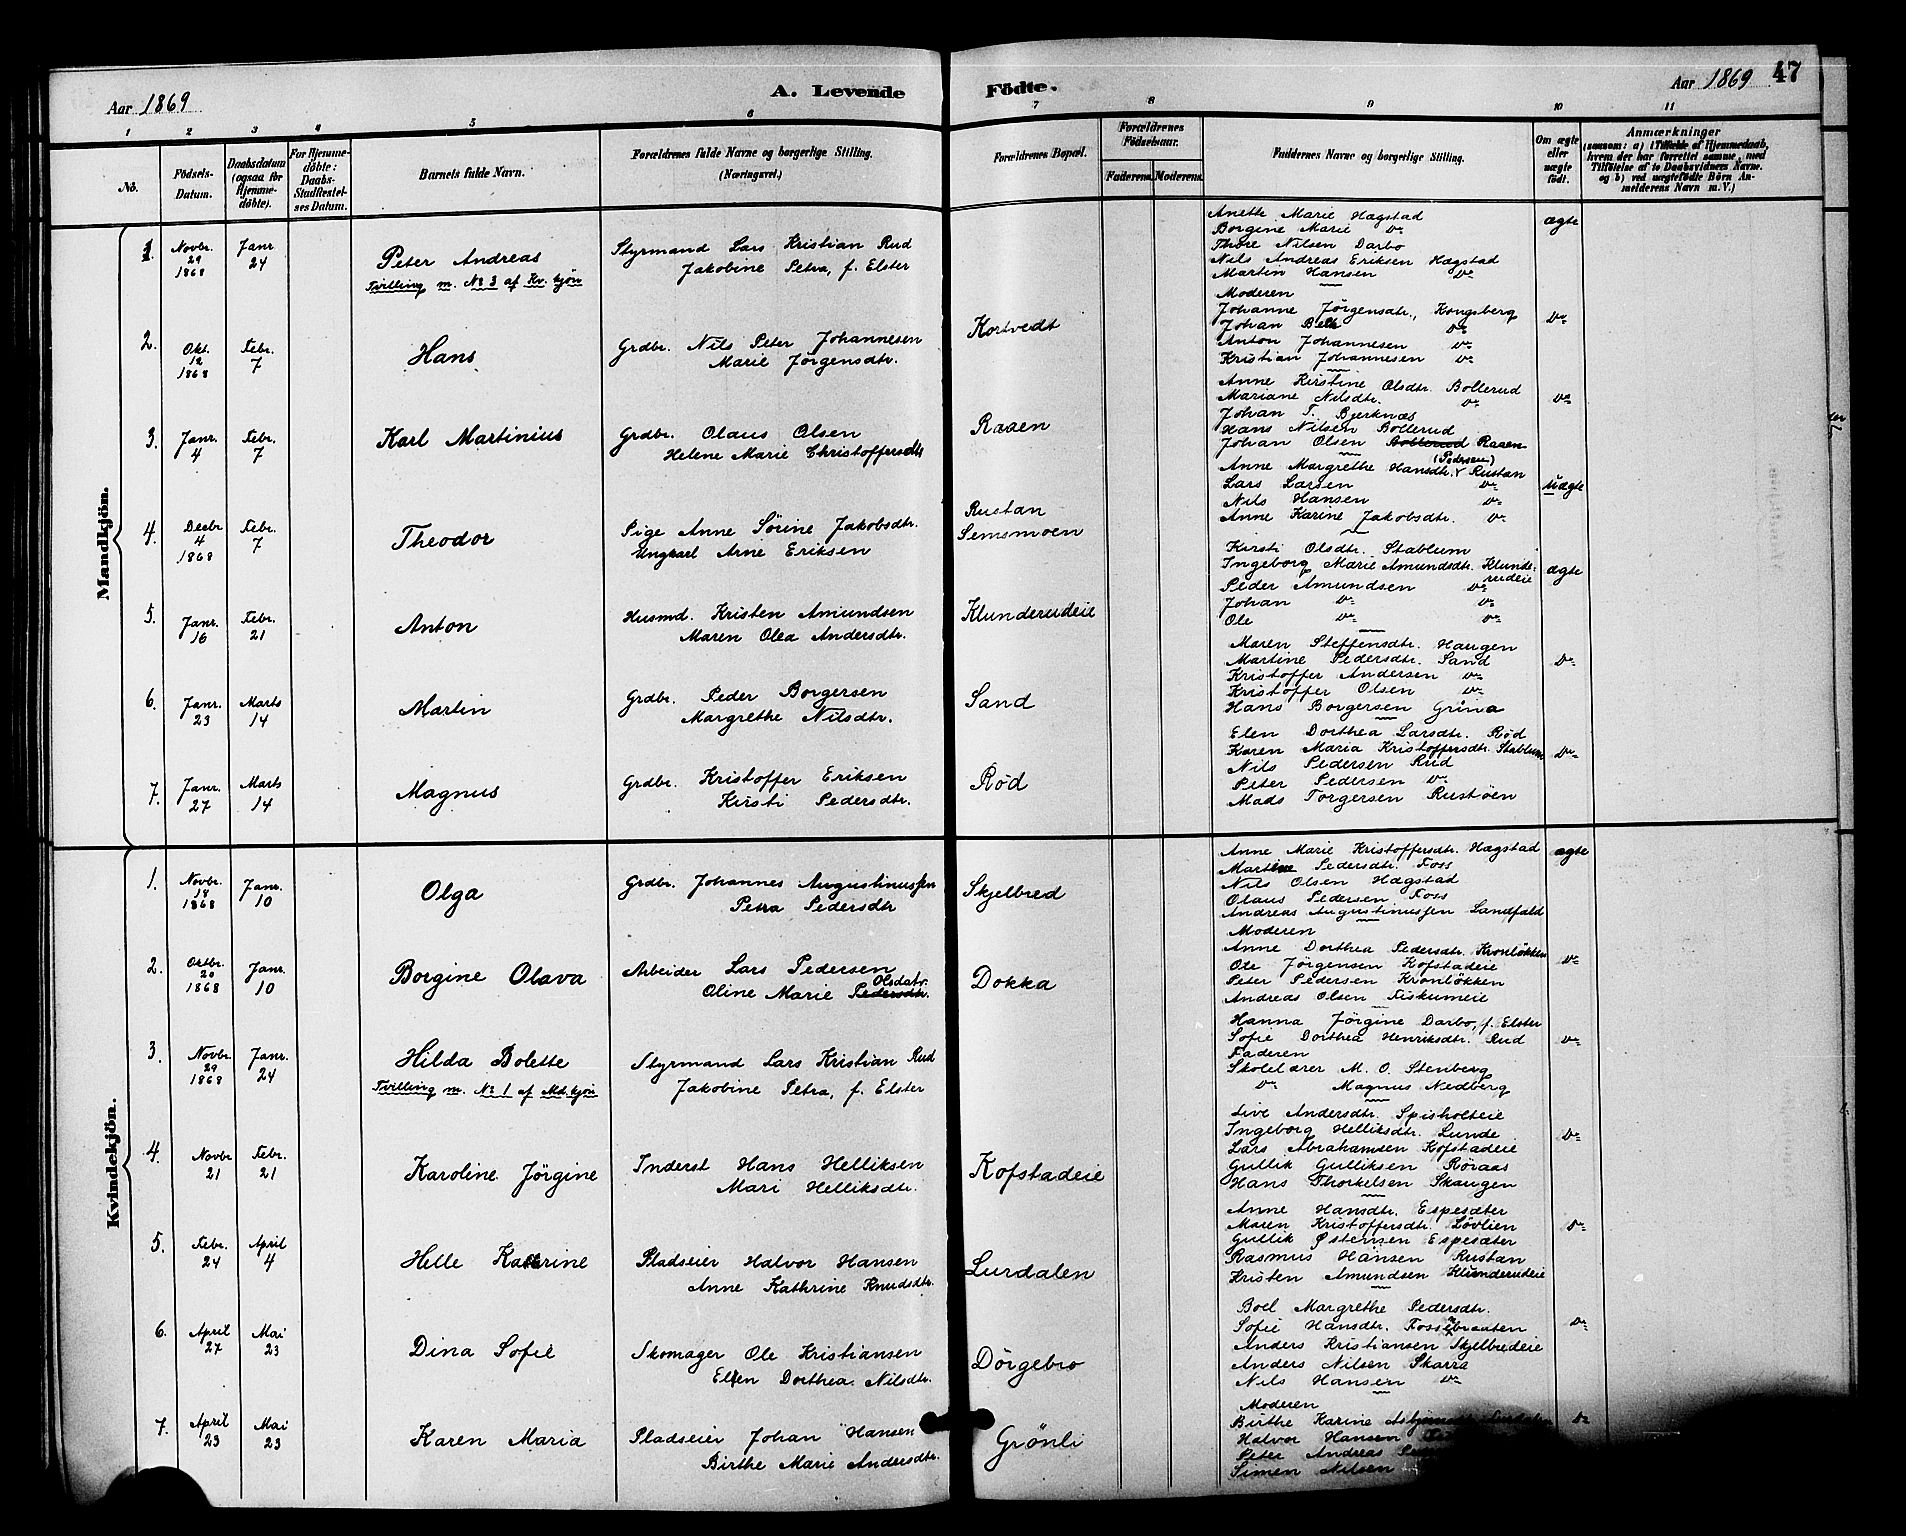 Aar 1869
A. Levende
Födte.
Aar 1869
47
1 2 3 4 5 6 7 8 9 10 11
No.
Födsels-Datum.
Daabsdatum (ogsaa for Hjemme-döbte).
For Hjemme-döbte: Daabs-Stadfestel-ses Datum.
Barnets fulde Navn.
Forældrenes fulde Navne og borgerlige Stilling. (Næringsvei.)
Forældrenes Bopæl.
Forældrenes Födselsaar.
Faderens. Moderens.
Faddernes Navne og borgerlige Stilling.
Om ægte eller uægte födt.
Anmærkninger
(saasom: a) i Tilfælde af Hjemmedaab,
hvem der har forrettet samme, med
Tilföielse af to Daabsvidners Navne.
og b) ved uægtefödte Börn An-
melderens Navn m. V.)
Mandkjön.
1. Novbr. 29 1868 Janr. 24
Peter Andreas
Tvilling m. No 3 af Kv. kjön
Styrmand Lars Kristian Rud
Jakobine Petra, f. Elster
Anethe Marie Hægstad
Borgine Marie do
Thore Nilsen Darbo
Nils Andreas Eriksen Hægstad
Martin Hansen do
ægte
2. Okt. 12 1868 Febr. 7
Hans
Grdbr. Nils Peter Johannesen
Marie Jörgensdtr.
Kortvedt
Moderen
Johanne Jörgensdtr., Kongsberg
Johan Beck do
Anton Johannesen do
Kristian Johannesen do
do
3. Janr. 4 Febr. 7
Karl Martinius
Grdbr. Olaus Olsen
Helene Marie Christoffersdtr
Raaen
Anne Kirstine Olsdtr. Bollerud
Mariane Nilsdtr. do
Johan T. Bjerknæs
Hans Nilsen Bollerud
Johan Olsen Bollerud Raaen
do
4. Decbr 4 1868 Febr. 7
Theodor
Pige Anne Sörine Jakobsdtr.
Ungkarl Arne Eriksen
Rustan
Semsmoen
(Pedersen)
Anne Margrethe Hansdtr. Rustan
Lars Larsen do
Nils Hansen do
Anne Karine Jakobsdtr. do
Uægte
5. Janr. 16 Febr. 21
Anton
Husmd. Kristen Amundsen
Maren Olea Andersdtr.
Klunderudeie
Kirsti Olsdtr. Stablum
Ingeborg Marie Amundsdtr. Klunde-
rudeie
Peder Amundsen do
Johan do do
Ole do do
ægte
6. Janr. 23 Marts 14
Martin
Grdbr. Peder Borgersen
Margrethe Nilsdtr.
Sand
Maren Steffensdtr. Haugen
Martine Pedersdtr. Sand
Kristoffer Andersen do
Kristoffer Olsen do
Hans Borgersen Grina
do
7. Janr. 27 Marts 14
Magnus
Grdbr. Kristoffer Eriksen
Kirsti Pedersdtr.
Röd
Elen Dorthea Larsdtr. Röd
Karen Maria Kristoffersdtr. Stablum
Nils Pedersen Rud
Peter Pedersen do
Mads Torgersen Rustöen
do
Kvindekjön.
1. Novbr. 18 1868 Janr. 10
Olga
Grdbr. Johannes Augustinussen
Petra Pedersdtr
Skjelbred
Anne Marie Kristoffersdtr. Hægstad
Martine Pedersdtr. Foss
Nils Olsen Hægstad
Olaus Pedersen Foss
Andreas Augustinussen Landfald
ægte
2. Octbr. 20 1868 Janr. 10
Borgine Olava
Arbeider Lars Pedersen
Oline Marie Pedersdtr. Olsdatr.
Dokka
Moderen
Anne Dorthea Pedersdtr. Kronlökken
Ole Jörgensen Kofstadeie
Peter Pedersen Kronlökken
Andreas Olsen Fiskumeie
do
3. Novbr. 29 1868 Janr. 24
Hilda Bolette
Tvilling m. No 1 af Md. kjön
Styrmand Lars Kristian Rud
Jakobine Petra, f. Elster
Hanna Jörgine Darbo, f. Elster
Sofie Dorthea Henriksdtr. Rud
Faderen
Skolelærer M. O. Stenberg
do Magnus Nedberg
do
4. Novbr 21 Febr. 21
Karoline Jörgine
Inderst Hans Helliksen
Mari Helliksdtr.
Kofstadeie
Live Andersdtr. Spisholteie
Ingeborg Helliksdtr. Lunde
Lars Abrahamsen Kofstadeie
Gullik Gulliksen Röraas
Hans Thorkelsen Skaugen
do
5. Febr. 24 April 4
Helle Kathrine
Pladseier Halvor Hansen
Anne Kathrine Knudsdtr.
Lurdalen
Anne Hansdtr. Espesæter
Maren Kristoffersdtr. Lövlien
Gullik Østensen Espesæter
Rasmus Hansen Rustan
Kristen Amundsen Klunderudeie
do
6. April 27 Mai 23
Dina Sofie
Skomager Ole Kristiansen
Ellen Dorthea Nilsdtr.
Dörgebro
Boel Margrethe Pedersdtr.
Sofie Hansdtr. Fossebraaten
Anders Kristiansen Skjelbredeie
Anders Nilsen Skarra
Nils Hansen do
do
7. April 23 Mai 23
Karen Maria
Pladseier Johan Hansen
Birthe Marie Andersdtr.
Grönli
Moderen
Birthe Karine Lurdalen
Halvor Hansen
Peter Andreas
Simen Nilsen
do